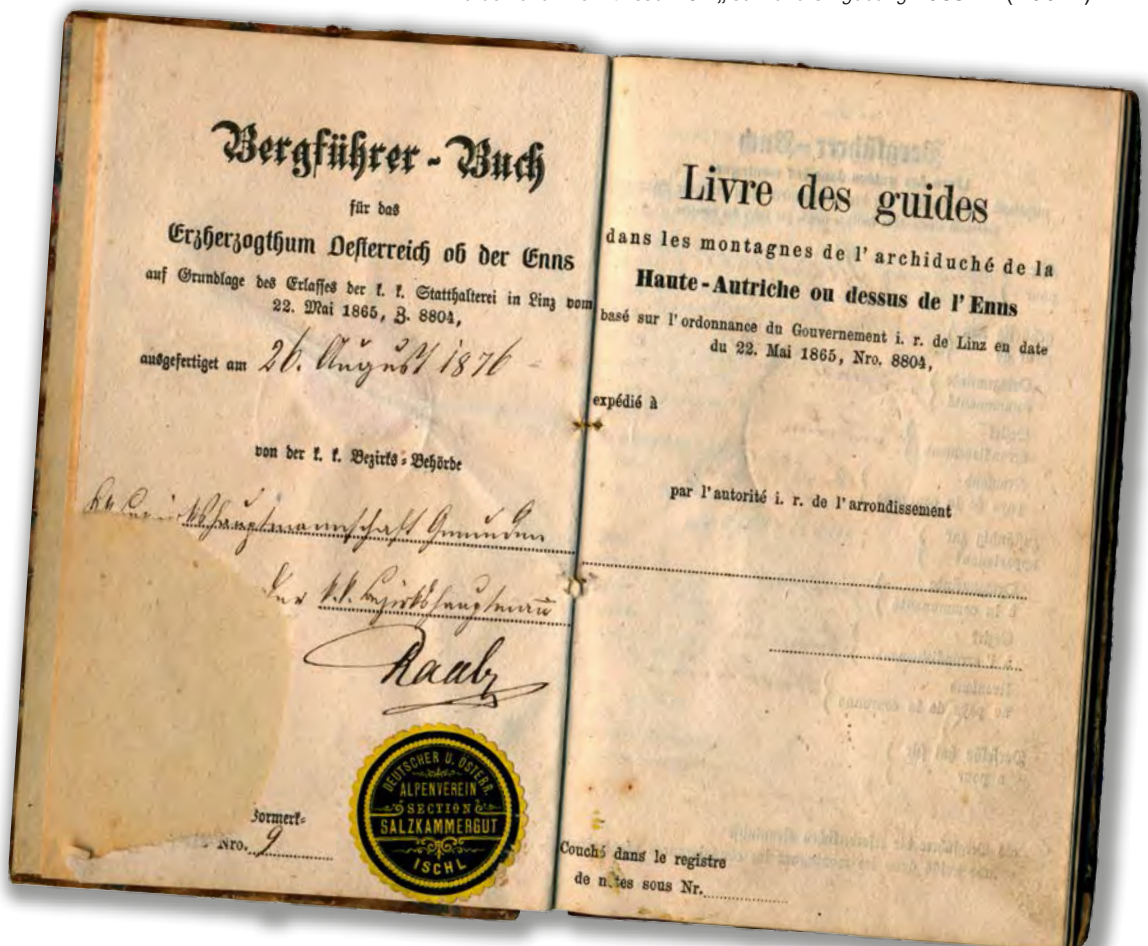 Bergführer-Buch
für das
Erzherzogthum Oesterreich ob der Enns
auf Grundlage des Erlasses der k. k. Statthalterei in Linz vom
22. Mai 1865, Z. 8804,
ausgefertiget am 26. August 1876
von der k. k. Bezirks-Behörde
Bezirkshauptmannschaft Gmunden
Der k.k. Bezirkshauptmann
Vormerk-
Nro. 9
DEUTSCHER U. ÖSTERR.
ALPENVEREIN
SECTION
SALZKAMMERGUT
ISCHL
Livre des guides
dans les montagnes de l'archiduché de la
Haute-Autriche ou dessus de l'Enns
basé sur l'ordonnance du Gouvernement i. r. de Linz en date
du 22. Mai 1865, Nro. 8804,
expédié à
par l'autorité i. r. de l'arrondissement
Couché dans le registre
de notes sous Nr.